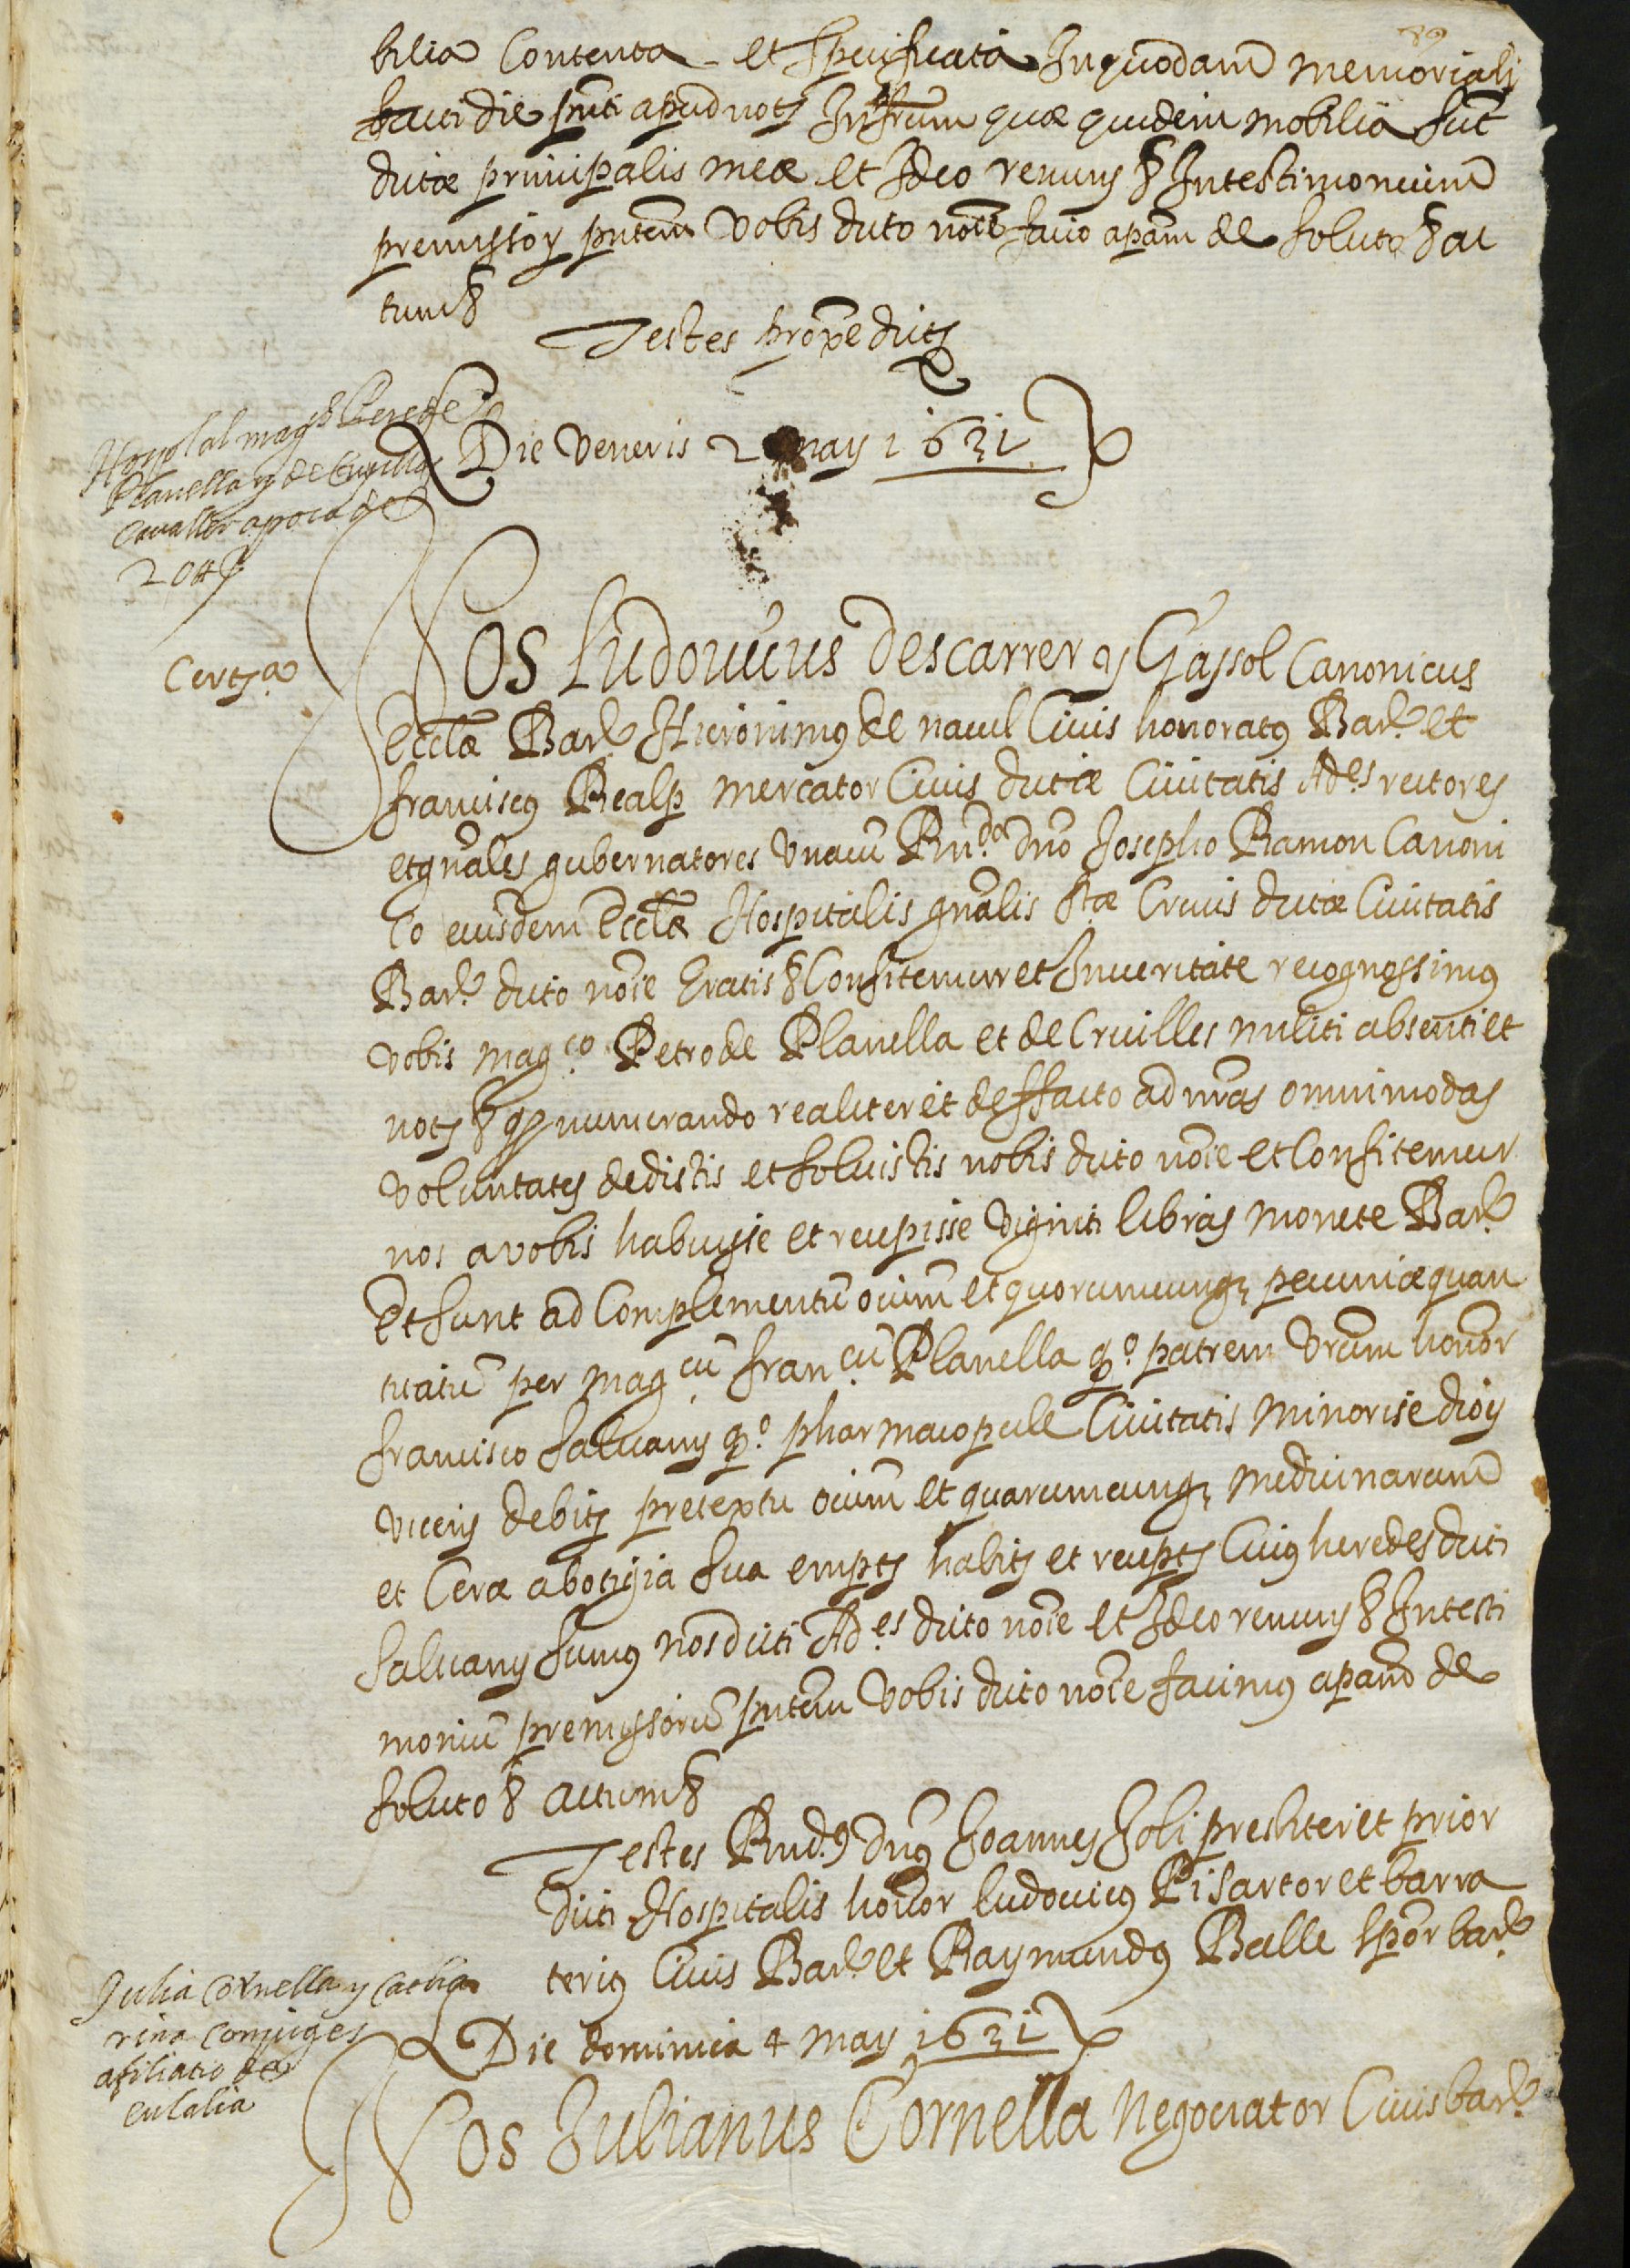 89
bilia Contenta et specificata In quodam memoriali
facti die pnti apud nots Infrum quæ quidem mobilia sut
dictæ principalis meæ et Ideo renuns & In testimonium
premissor pntem vobis dicto noie facio apam de soluto & ac
tum &
Testes prope dicti
Die veneris 2 may 1631
Hospl al magch Pere de
Planella y de Cruilles
Cavaller apoca de
20 ₶
Certa
Nos Ludovicus Descarrer y Gassol Canonicus
Eccłæ Barne Hieronimus de navel Civis honoratus Barne et
franciscus Realp mercator Civis dictæ Civitatis Ades rectores
et gnales gubernatores una cu Rndo dno Josepho Ramon Canoni
co eiusdem Ecclæ Hospitalis gnalis stæ Crucis dictæ Civitatis
Barne dicto noie Gratis & Confitemur et In veritate recognossimus
vobis magco Petro de Planella et de Cruilles militi absenti et
nots & qp numerando realiter et de ffacto ad nras omnimodas
voluntates dedistis et solvistis nobis dicto noie et Confitemur
nos a vobis habuisse et recepisse viginti libras monete Barne
Et sunt ad Complementu oium et quorumcunq pecuniæ quan
titatu per magcu francu Planella qo patrem vrum honor
francisco salvany qo pharmacopule Civitatis Minorise dioy
vicens debits pretextu oium et quarumcunq medicinarum
et Ceræ a botigia sua empts habits et recepts Cuius heredes dicti
salvany sumus nos dicti Ades dicto noie et Ideo renuns & In testi
moniu premissoru pntem vobis dicto noie facimus apam de
soluto & actum &
Testes Rnds dns Joannes Joli presbiter et prior
dicti Hospitalis honor ludovicus Pi sartor et barra
terius Civis Barne et Raymundus Balle spor barne
Julia Cornella y Catha
rina conjuges
afiliatio de
eulalia
Die dominica 4 may 1631
Nos Julianus Cornella Negociator Civis barne